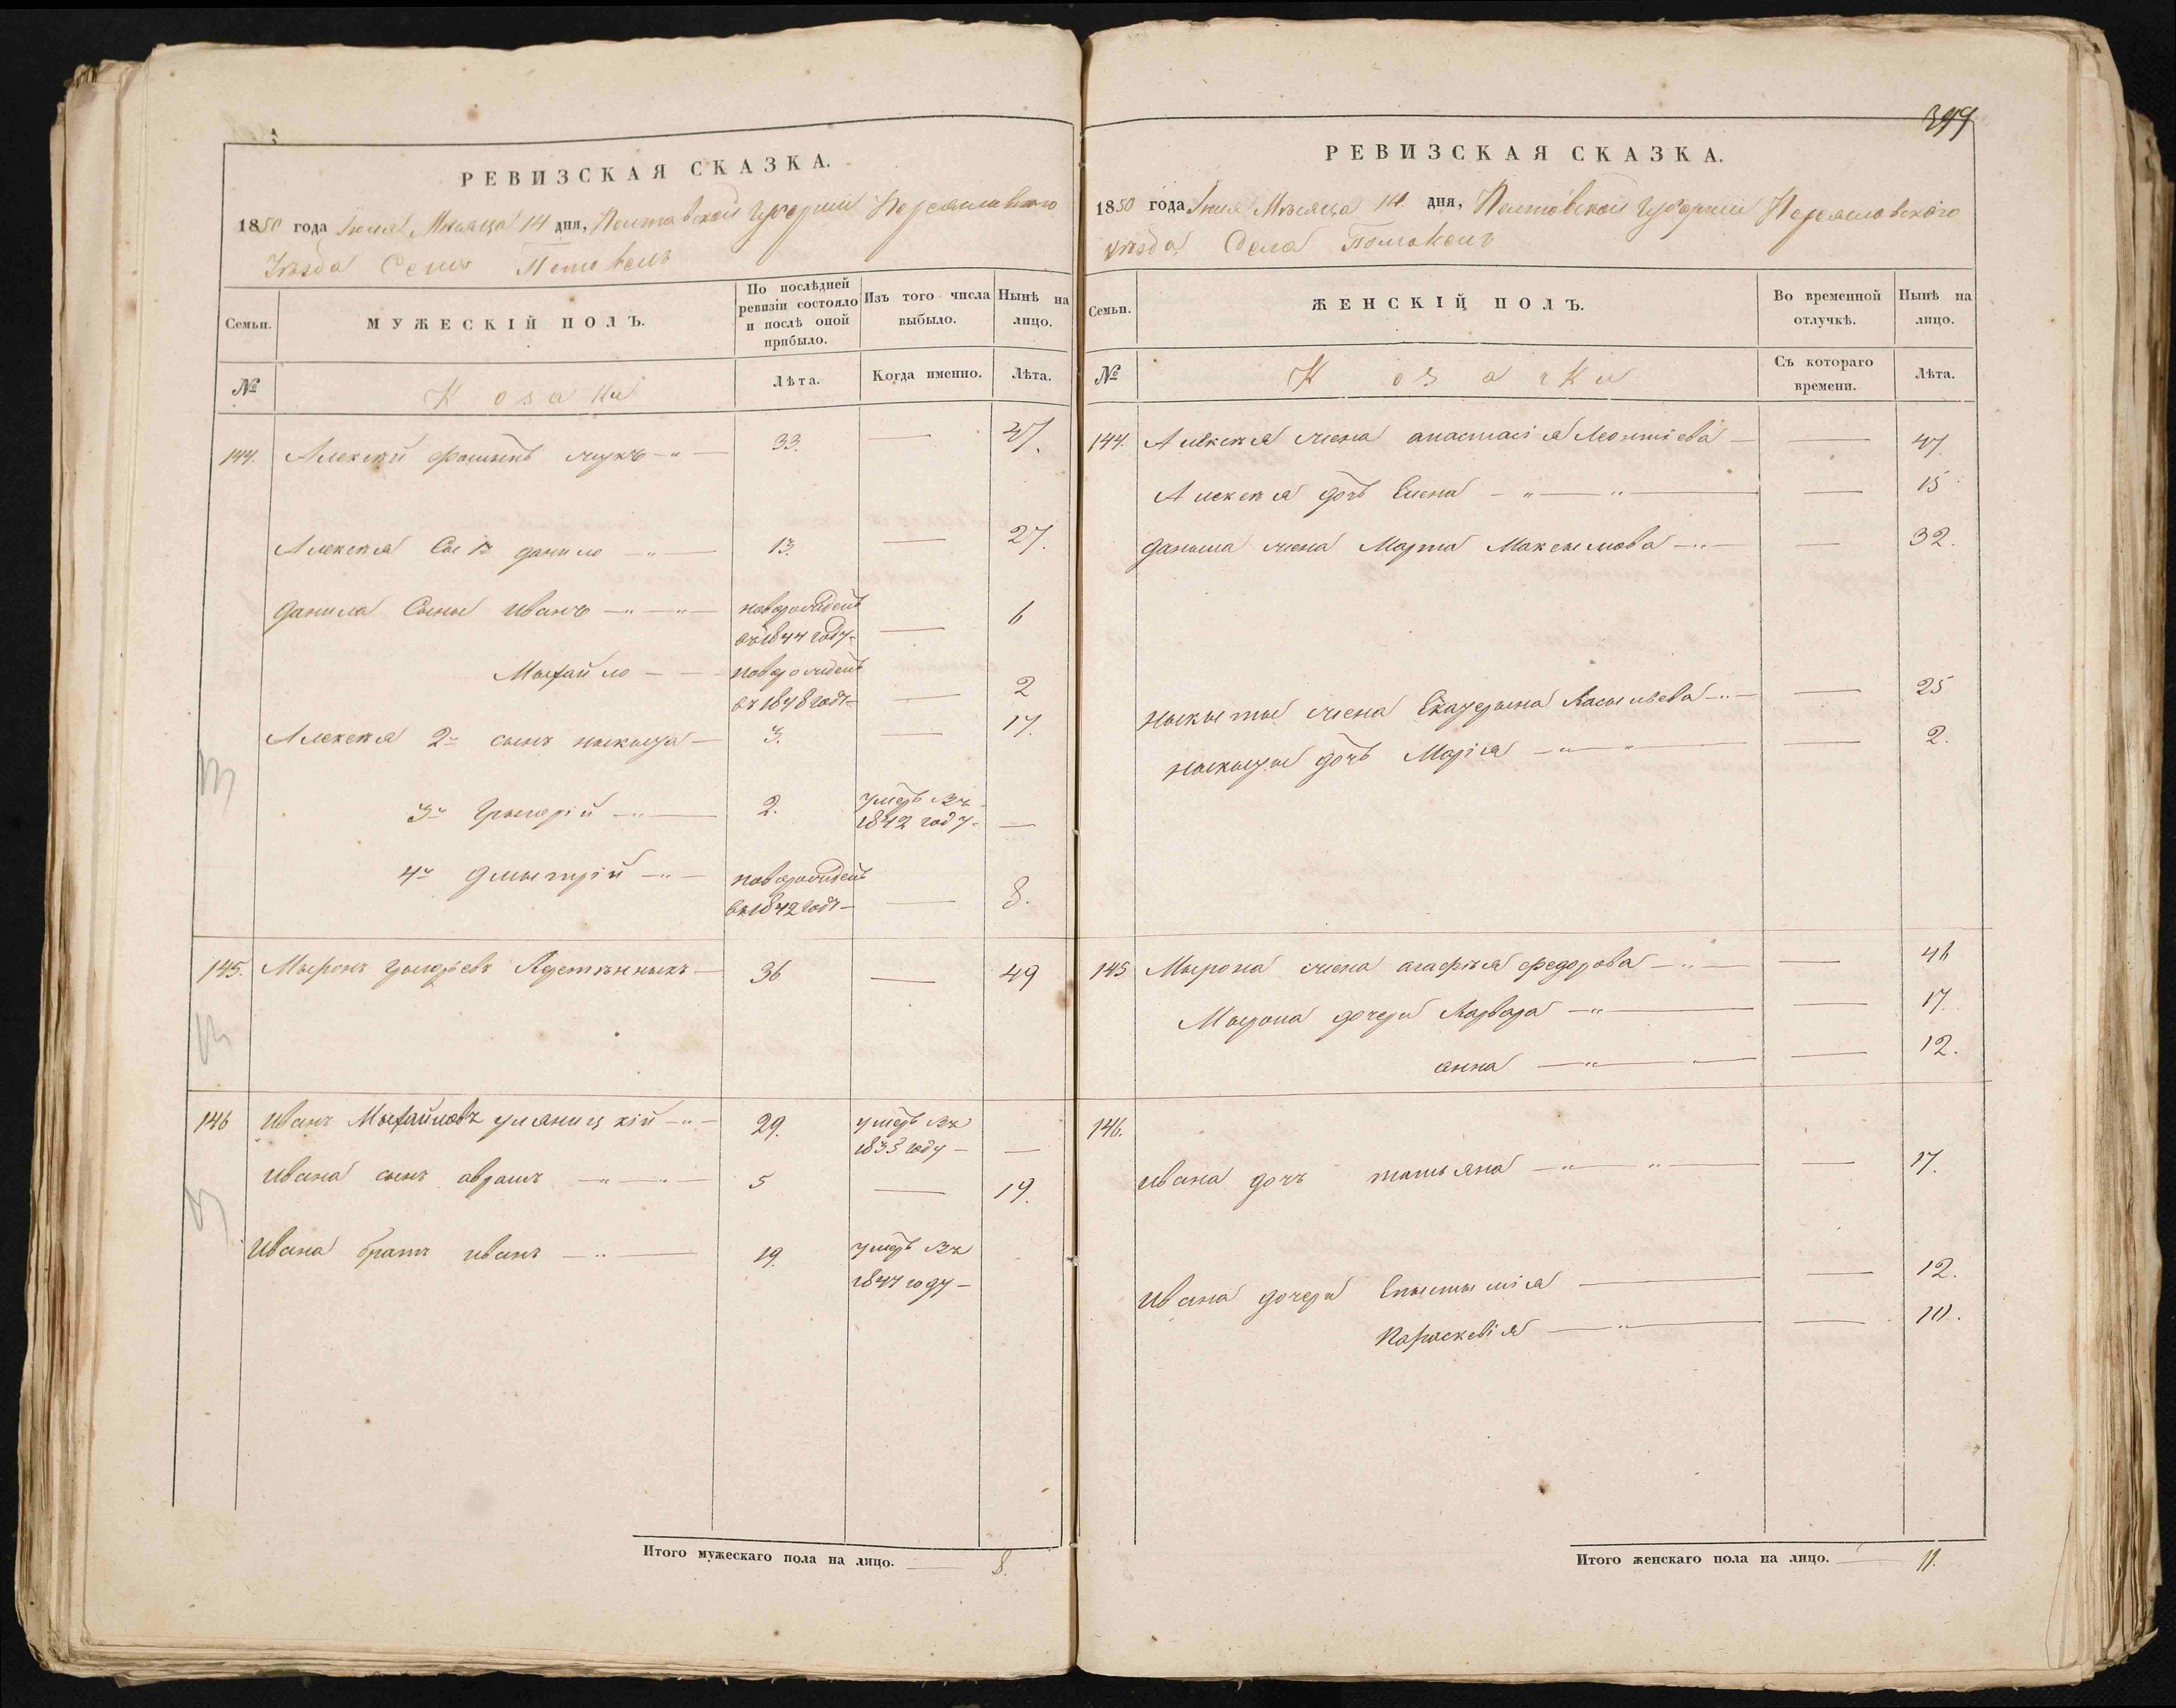 РЕВИЗСКАЯ СКАЗКА.
1850 года Июня Месяца 14 дня, Полтавской Губернии Переяславского
Уезда Села Помокель
Семьи.
МУЖЕСКІЙ ПОЛЪ.
По послѣдней ревизіи состояло и послѣ оной прибыло.
Изъ того числа выбыло.
Нынѣ на лицо.
№
Козаки
Лѣта.
Когда именно.
Лѣта.
144. Алексей 33. — 47.
Алексея Сы 1й данило — 13. — 27.
данила Сыны иванъ — новорожденъ
въ 1844 году — — 6
Мыхайло — новорожденъ
въ 1848 годе — — 2
Алексея 2й сынъ ныкыта — 3. — 17.
3й Грыгорій — 2. умеръ въ
1842 году — —
4й дмытрій — новорожденъ
въ 1842 годе — — 8.
145. Мыронъ Грыгорьевъ — 36 — 49
146 иванъ Мыхайловъ уляницкій — 29. умеръ въ
1835 году — —
ивана сынъ аврамъ — 5 — 19.
ивана братъ иванъ — 19. умеръ въ
1844 году —
Итого мужескаго пола на лицо. — 8.
399
РЕВИЗСКАЯ СКАЗКА.
1850 года Июня Месяца 14 дня, Полтавской Губернии Переясловского
уезда Села Помокель
Семьи.
ЖЕНСКІЙ ПОЛЪ.
Во временной отлучкѣ.
Нынѣ на лицо.
№
Козачки
Съ котораго времени.
Лѣта.
144. Алексея жена анастасія Леонтіева — — 47.
Алексея дочь Елена — — 15
данила жена Марта Максымова — — 32.
ныкыты жена Екатерына Васыльева — — 25
ныкыты дочь Марія — — 2.
145 Мырона жена агафія федорова — — 46
Мырона дочери Варвара — — 17.
анна — — 12.
146.
ивана дочь татьяна — — 17.
ивана дочери Епыстымія — — 12.
Параскевія — — 10.
Итого женскаго пола на лицо. — 11.